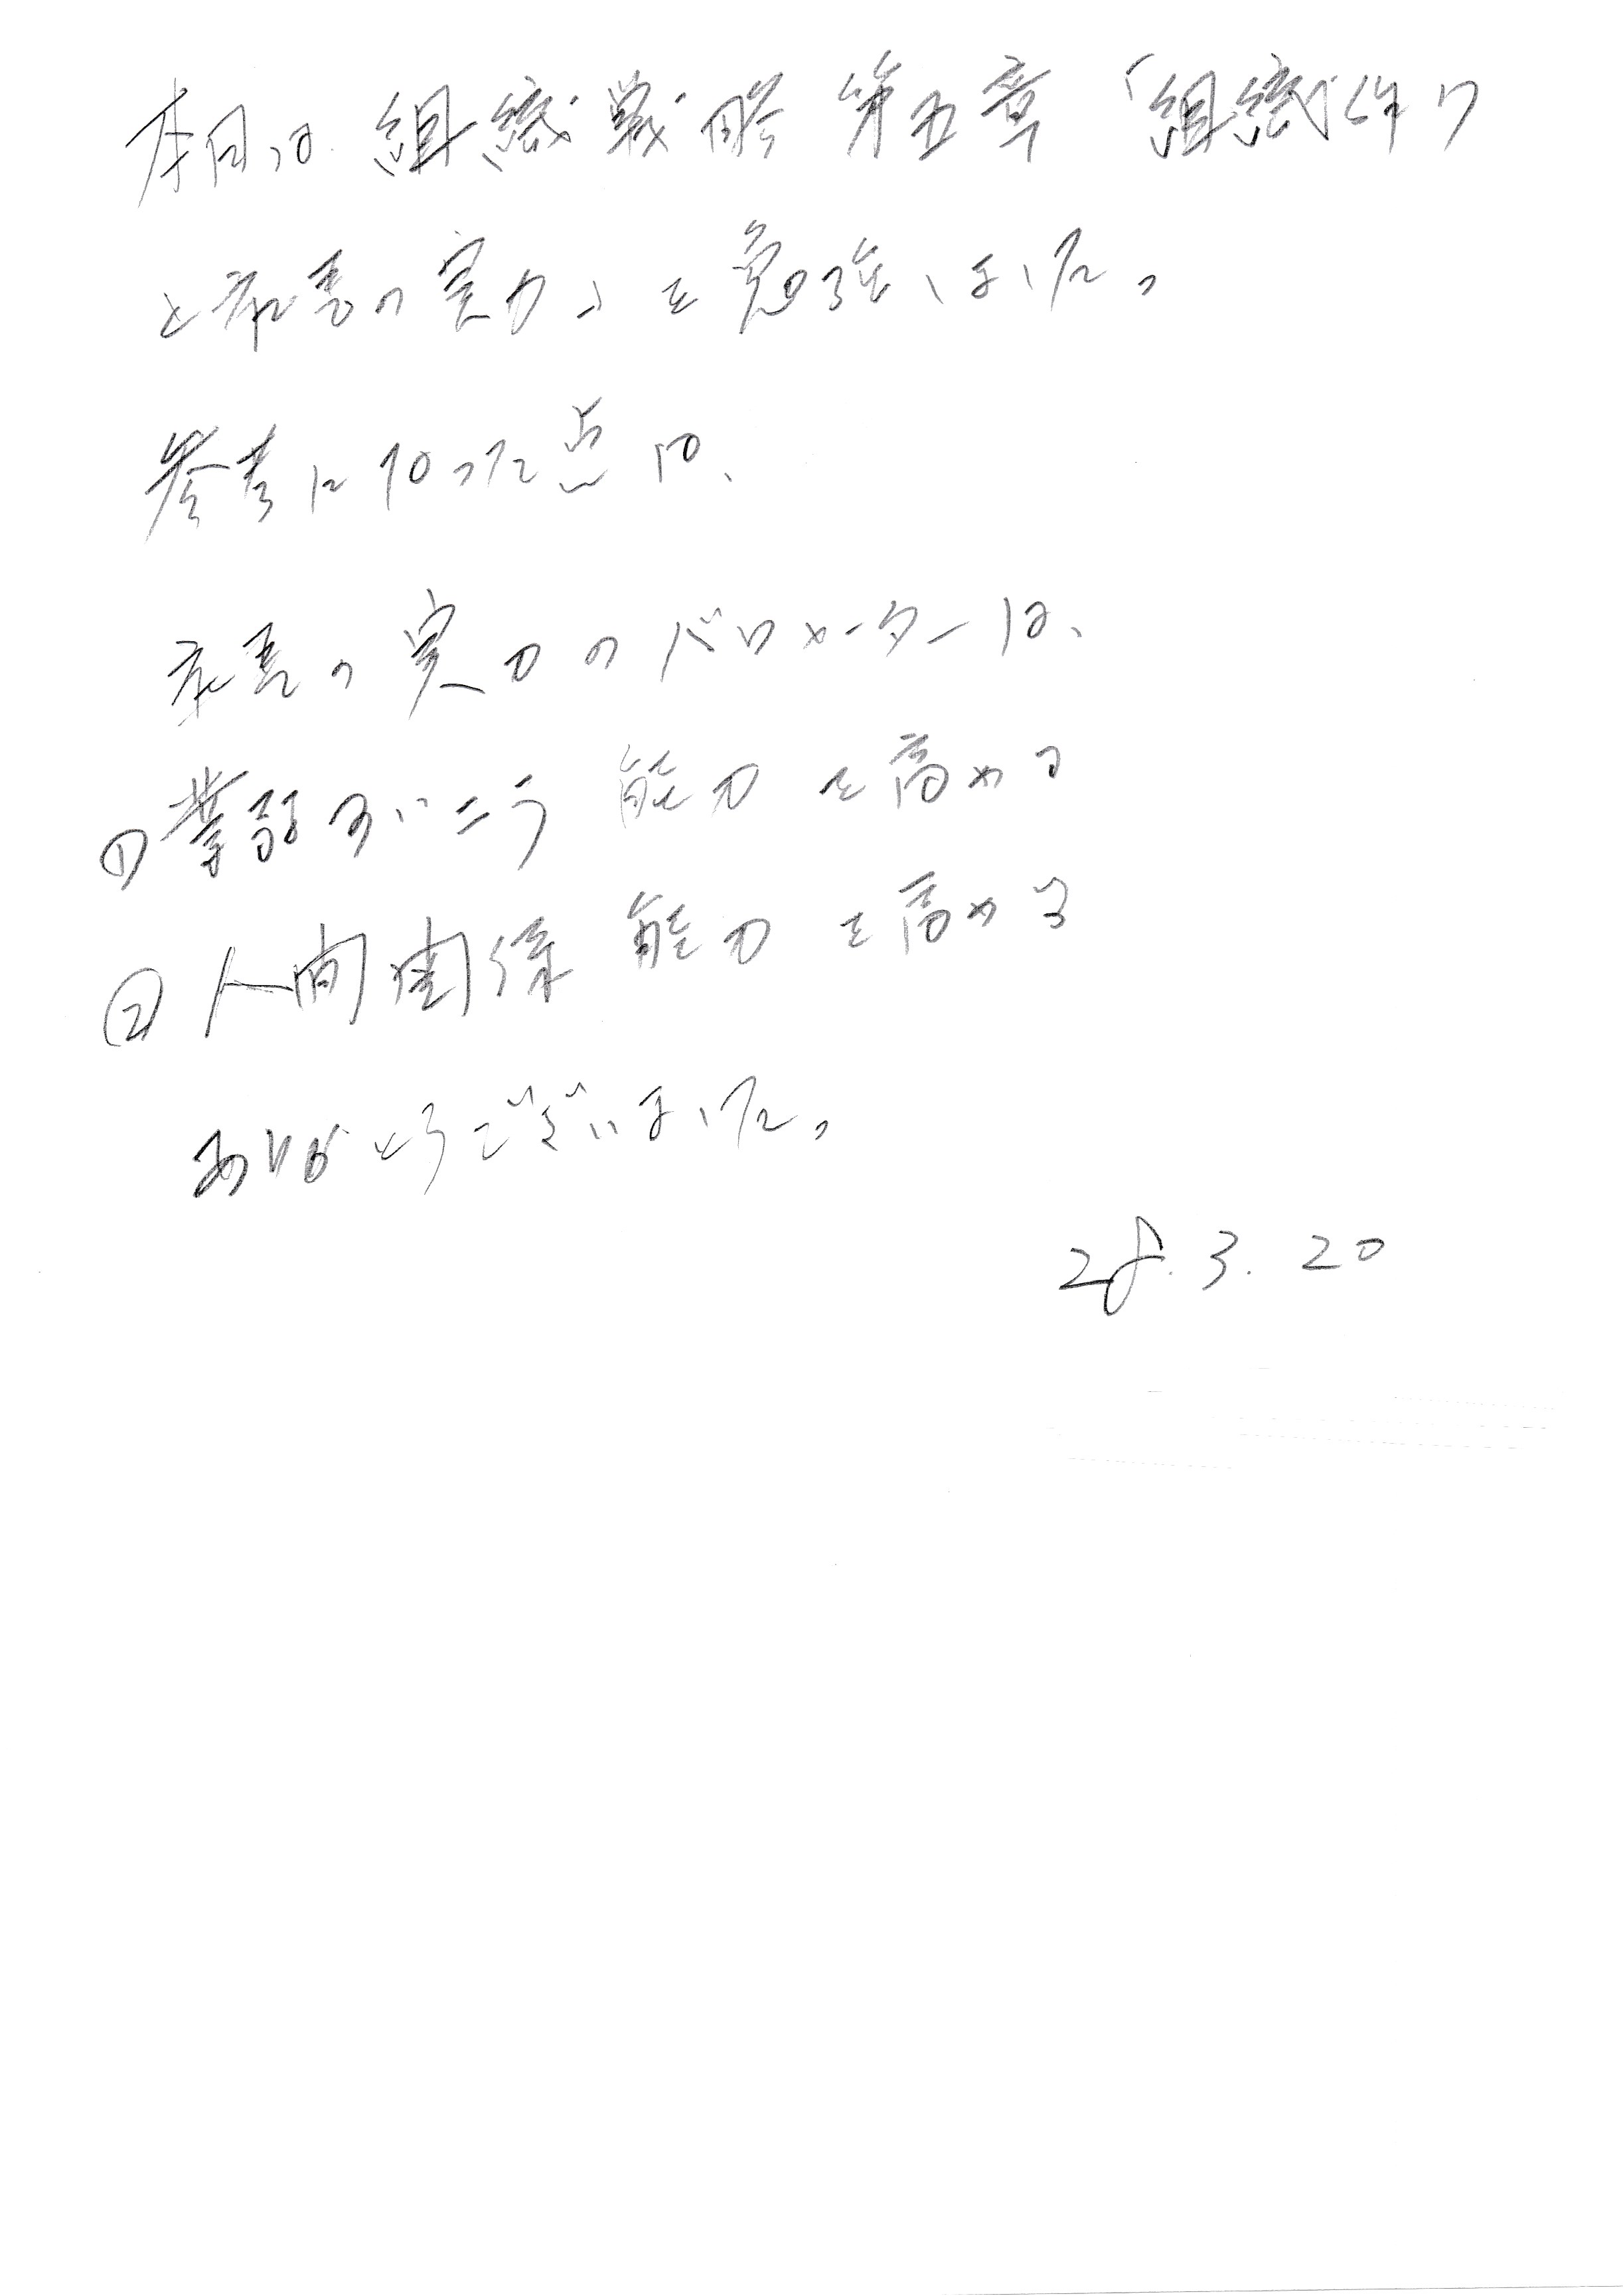 本日は 組織戦略 第五章 「組織作り
と社長の実力」を勉強しました。
参考になった点は、
社長の実力のバロメーターは、
① 能力を高める
② 人間関係 能力を高める
ありがとうございました。
28.3.20